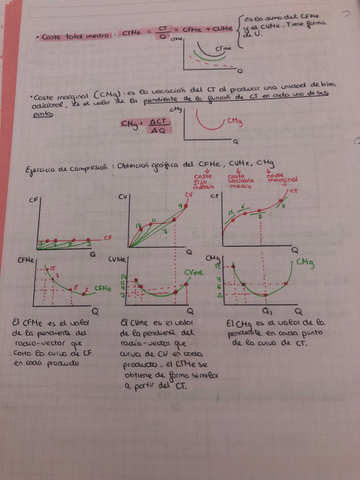 • Coste total medio: CTMe = CT/Q = CFMe + CVMe
es la suma del CFMe
y el CVMe. Tiene forma
de U.
CTme
Q
• Coste marginal (CMg): es la variación del CT al producir una unidad de bien
adicional. Es el valor de la pendiente de la función de CT en cada uno de sus
puntos.
CMg = ΔCT/ΔQ
CMg
CMg
Q
Ejercicio de compresión: Obtención gráfica del CFMe, CVMe, CMg
coste fijo medio
coste variable medio
coste marginal
CF
CF
Q
CV
CV
Q
CT
CT
Q
CFMe
CFMe
Q
CVMe
CVMe
Q
CMg
CMg
Q1
Q
El CFMe es el valor
de la pendiente del
radio-vector que
corta la curva de CF
en cada producto
El CVMe es el valor
de la pendiente del
radio-vector que
curva de CV en cada
producto. el CTMe se
obtiene de forma similar
a partir del CT.
El CMg es el valor de la
pendiente en cada punto
de la curva de CT.